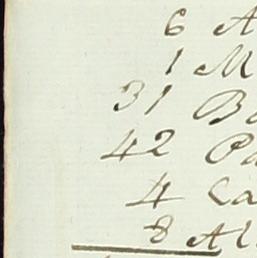 6 A
1 M
31 Ba
42 Pa
4 Ca
8 Al